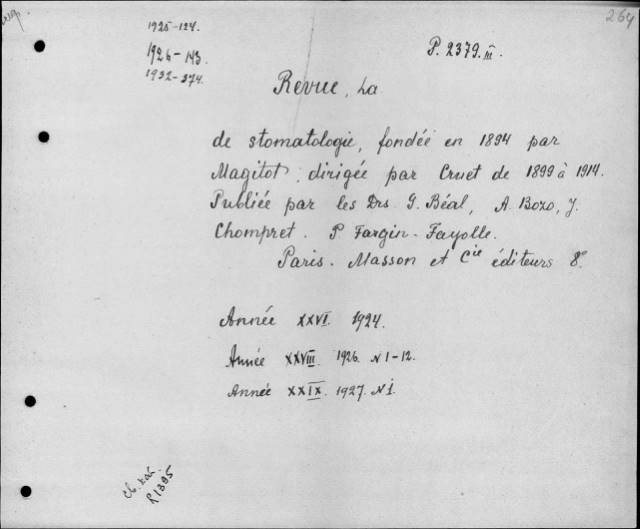 264
1925-124.
1926-143.
1932-374.
P. 2379. III.
Revue, La
de stomatologie, fondée en 1894 par
Magitot, dirigée par Cruet de 1899 à 1914.
Publiée par les Drs G. Béal, A. Bozo, J.
Chompret. P Fargin-Fayolle.
Paris. Masson et Cie éditeurs 8º
Année XXVI. 1924.
Année XXVIII. 1926. N 1-12.
Année XXIX. 1927. N 1.
R1395